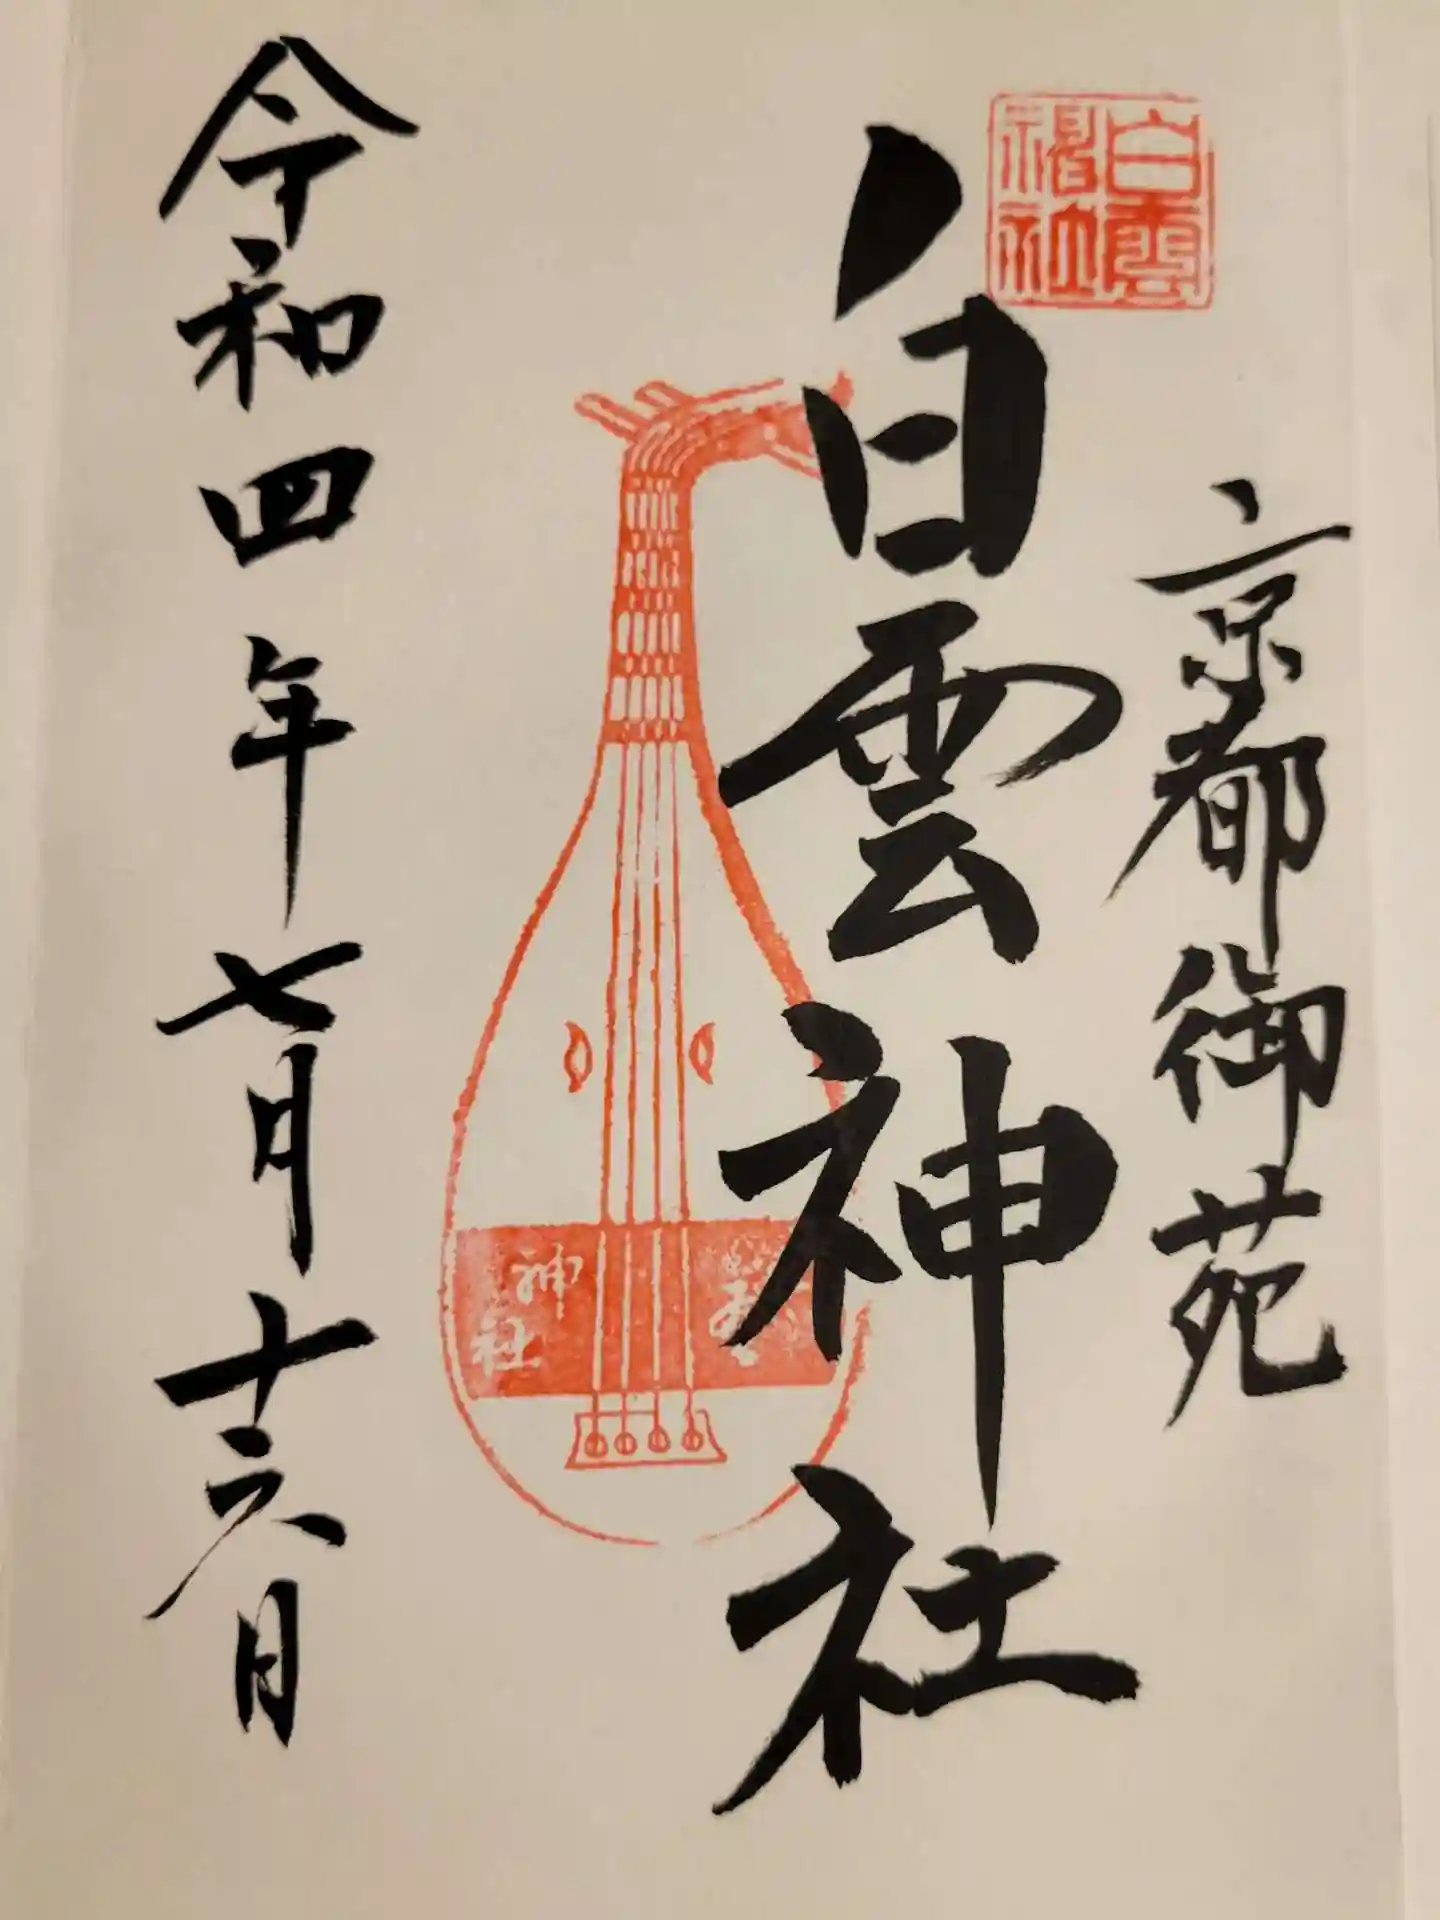 白雲
神社
京都御苑
白雲神社
白雲
神社
令和四年七月十六日